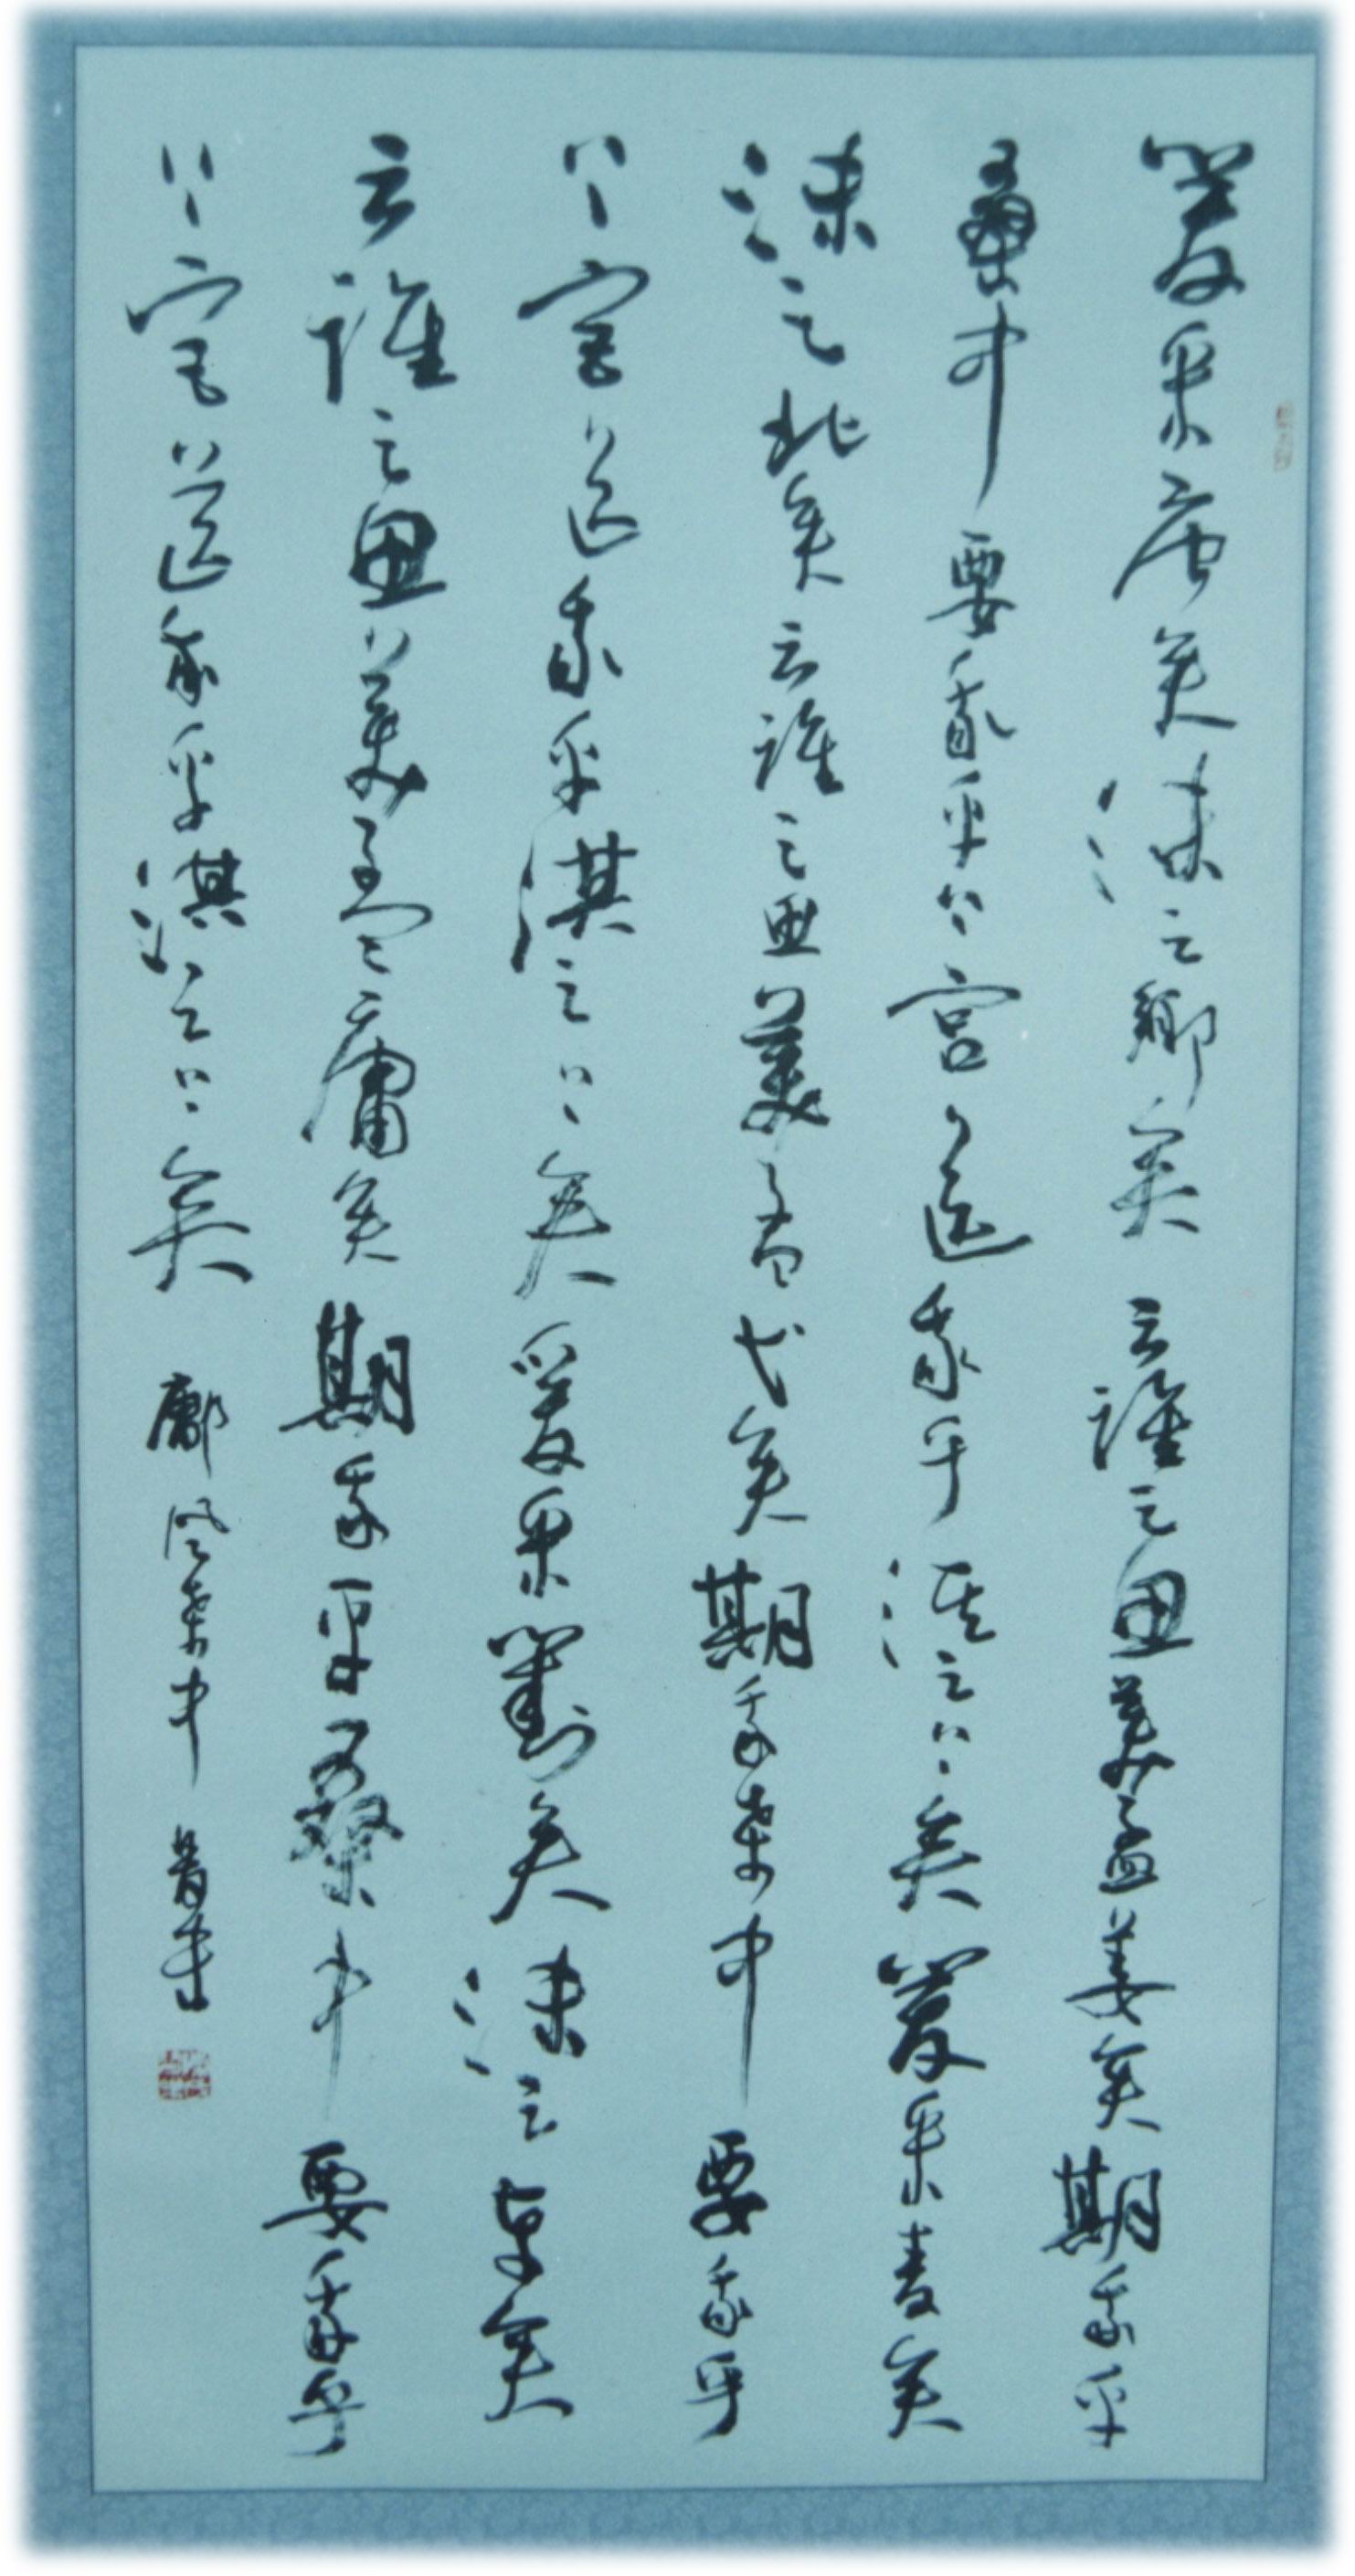 爰采唐矣沬之鄉矣云誰之思美孟姜矣期我乎
桑中要我乎上宮送我乎淇之上矣爰采麥矣
沬之北矣云誰之思美孟弋矣期我桑中要我乎
上宮送我乎淇之上矣爰采葑矣沬之東矣
云誰之思美孟庸矣期我乎桑中要我乎
上宮送我乎淇之上矣 鄘風桑中